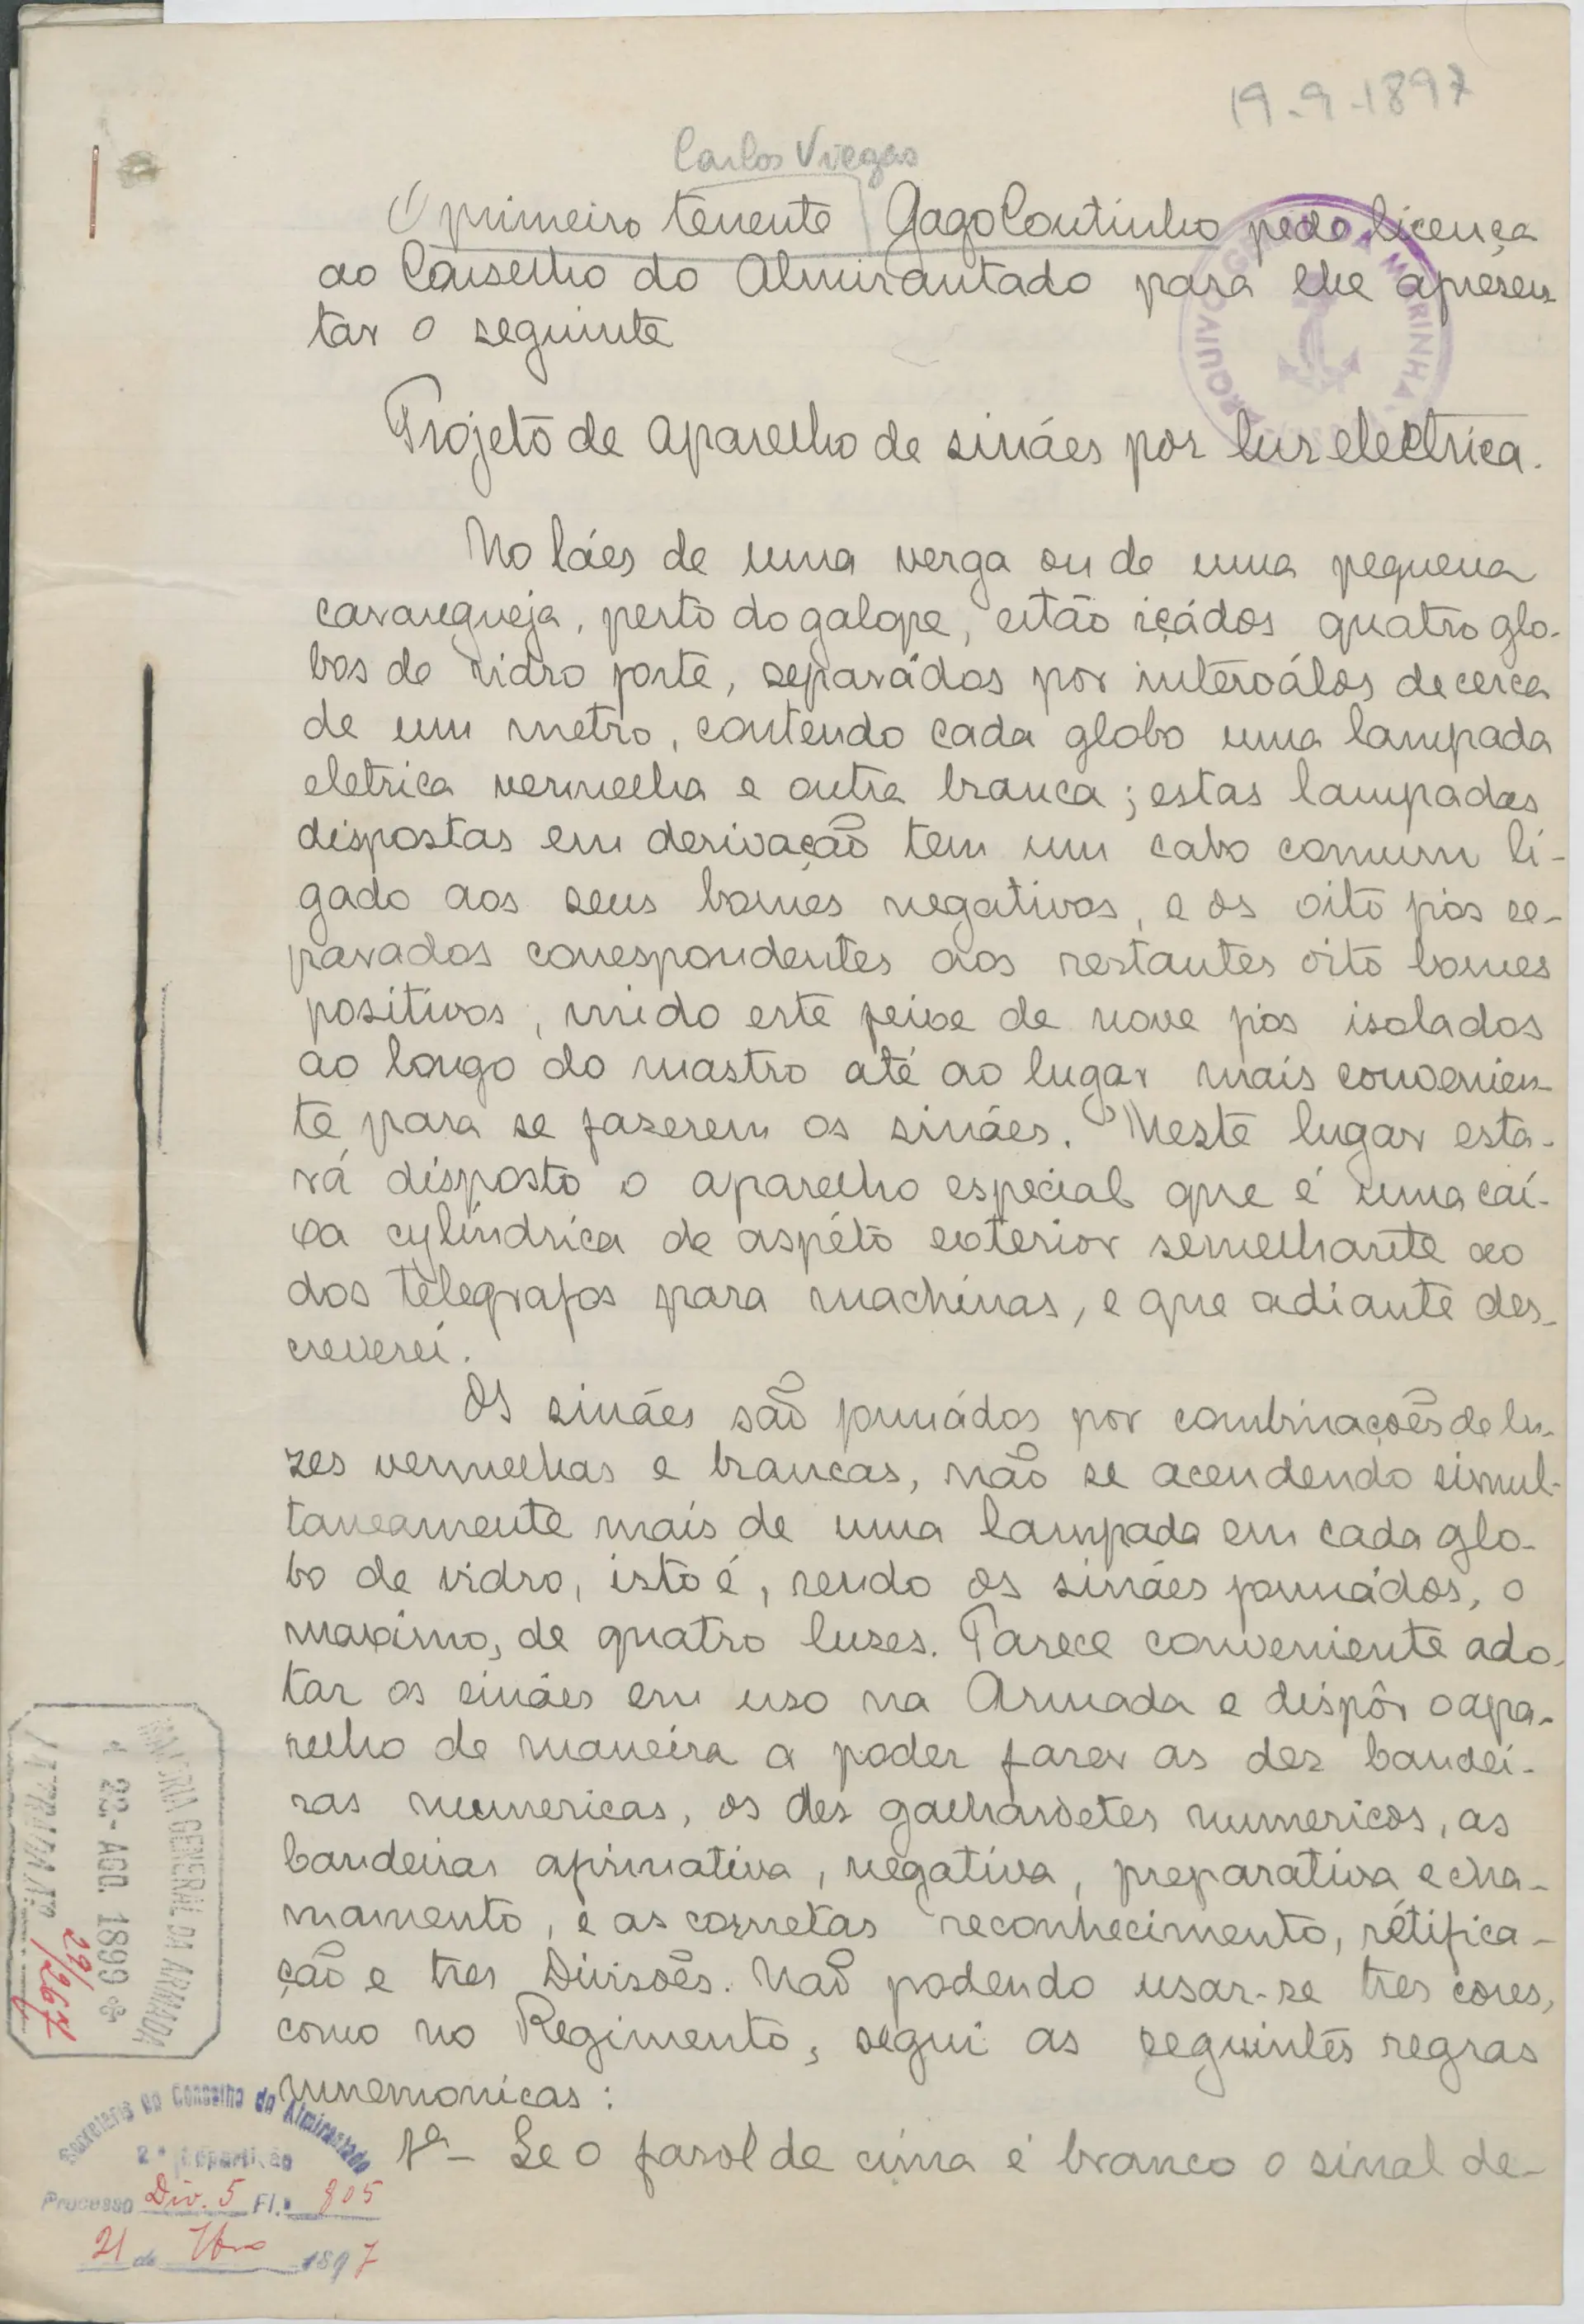 19-9-1897
Carlos Viegas
O primeiro tenente Gago Coutinho pede licença
ao Conselho do Almirantado para lhe apresen-
tar o seguinte
Projeto de aparelho de sináes por luz electrica.
No láes de uma verga ou de uma pequena
carangueja, perto do galope, estão içádos quatro glo-
bos de vidro forte, separádos por interválos de cerca
de um metro, contendo cada globo uma lampada
eletrica vermelha e outra branca; estas lampadas
dispostas em derivação tem um cabo comum li-
gado aos seus bornes negativos, e os oito fios se-
parados correspondentes aos restantes oito bornes
positivos, vindo este feixe de nove fios isolados
ao longo do mastro até ao lugar mais convenien-
te para se fazerem os sináes. Neste lugar esta-
rá disposto o aparelho especial que é uma cai-
xa cylindrica de aspéto exterior semelhante ao
dos telegrafos para machinas, e que adiante des-
creverei.
Os sináes são formádos por combinações de lu-
zes vermelhas e brancas, não se acendendo simul-
taneamente mais de uma lampada em cada glo-
bo de vidro, isto é, sendo os sináes formádos, o
maximo, de quatro luzes. Parece conveniente ado-
tar os sináes em uso na Armada e dispôr o apa-
relho de maneira a poder fazer as dez bandei-
ras numericas, os dez galhardetes numericos, as
bandeiras afirmativa, negativa, preparativa e cha-
mamento, e as cornetas reconhecimento, rétifica-
ção e tres Divisões. Não podendo usar-se tres cores,
como no Regimento, segui as seguintes regras
mnemonicas:
1ª - Se o farol de cima é branco o sinal de-
ARQUIVO GERAL DA MARINHA
MAJORIA GENERAL DA ARMADA
22-AGO. 1899
ENTRADA Nº
29/967
Secretaria do Conselho do Almirantado
2ª Repartição
Processo Div. 5 Fl. 805
21 de 7bro 1897